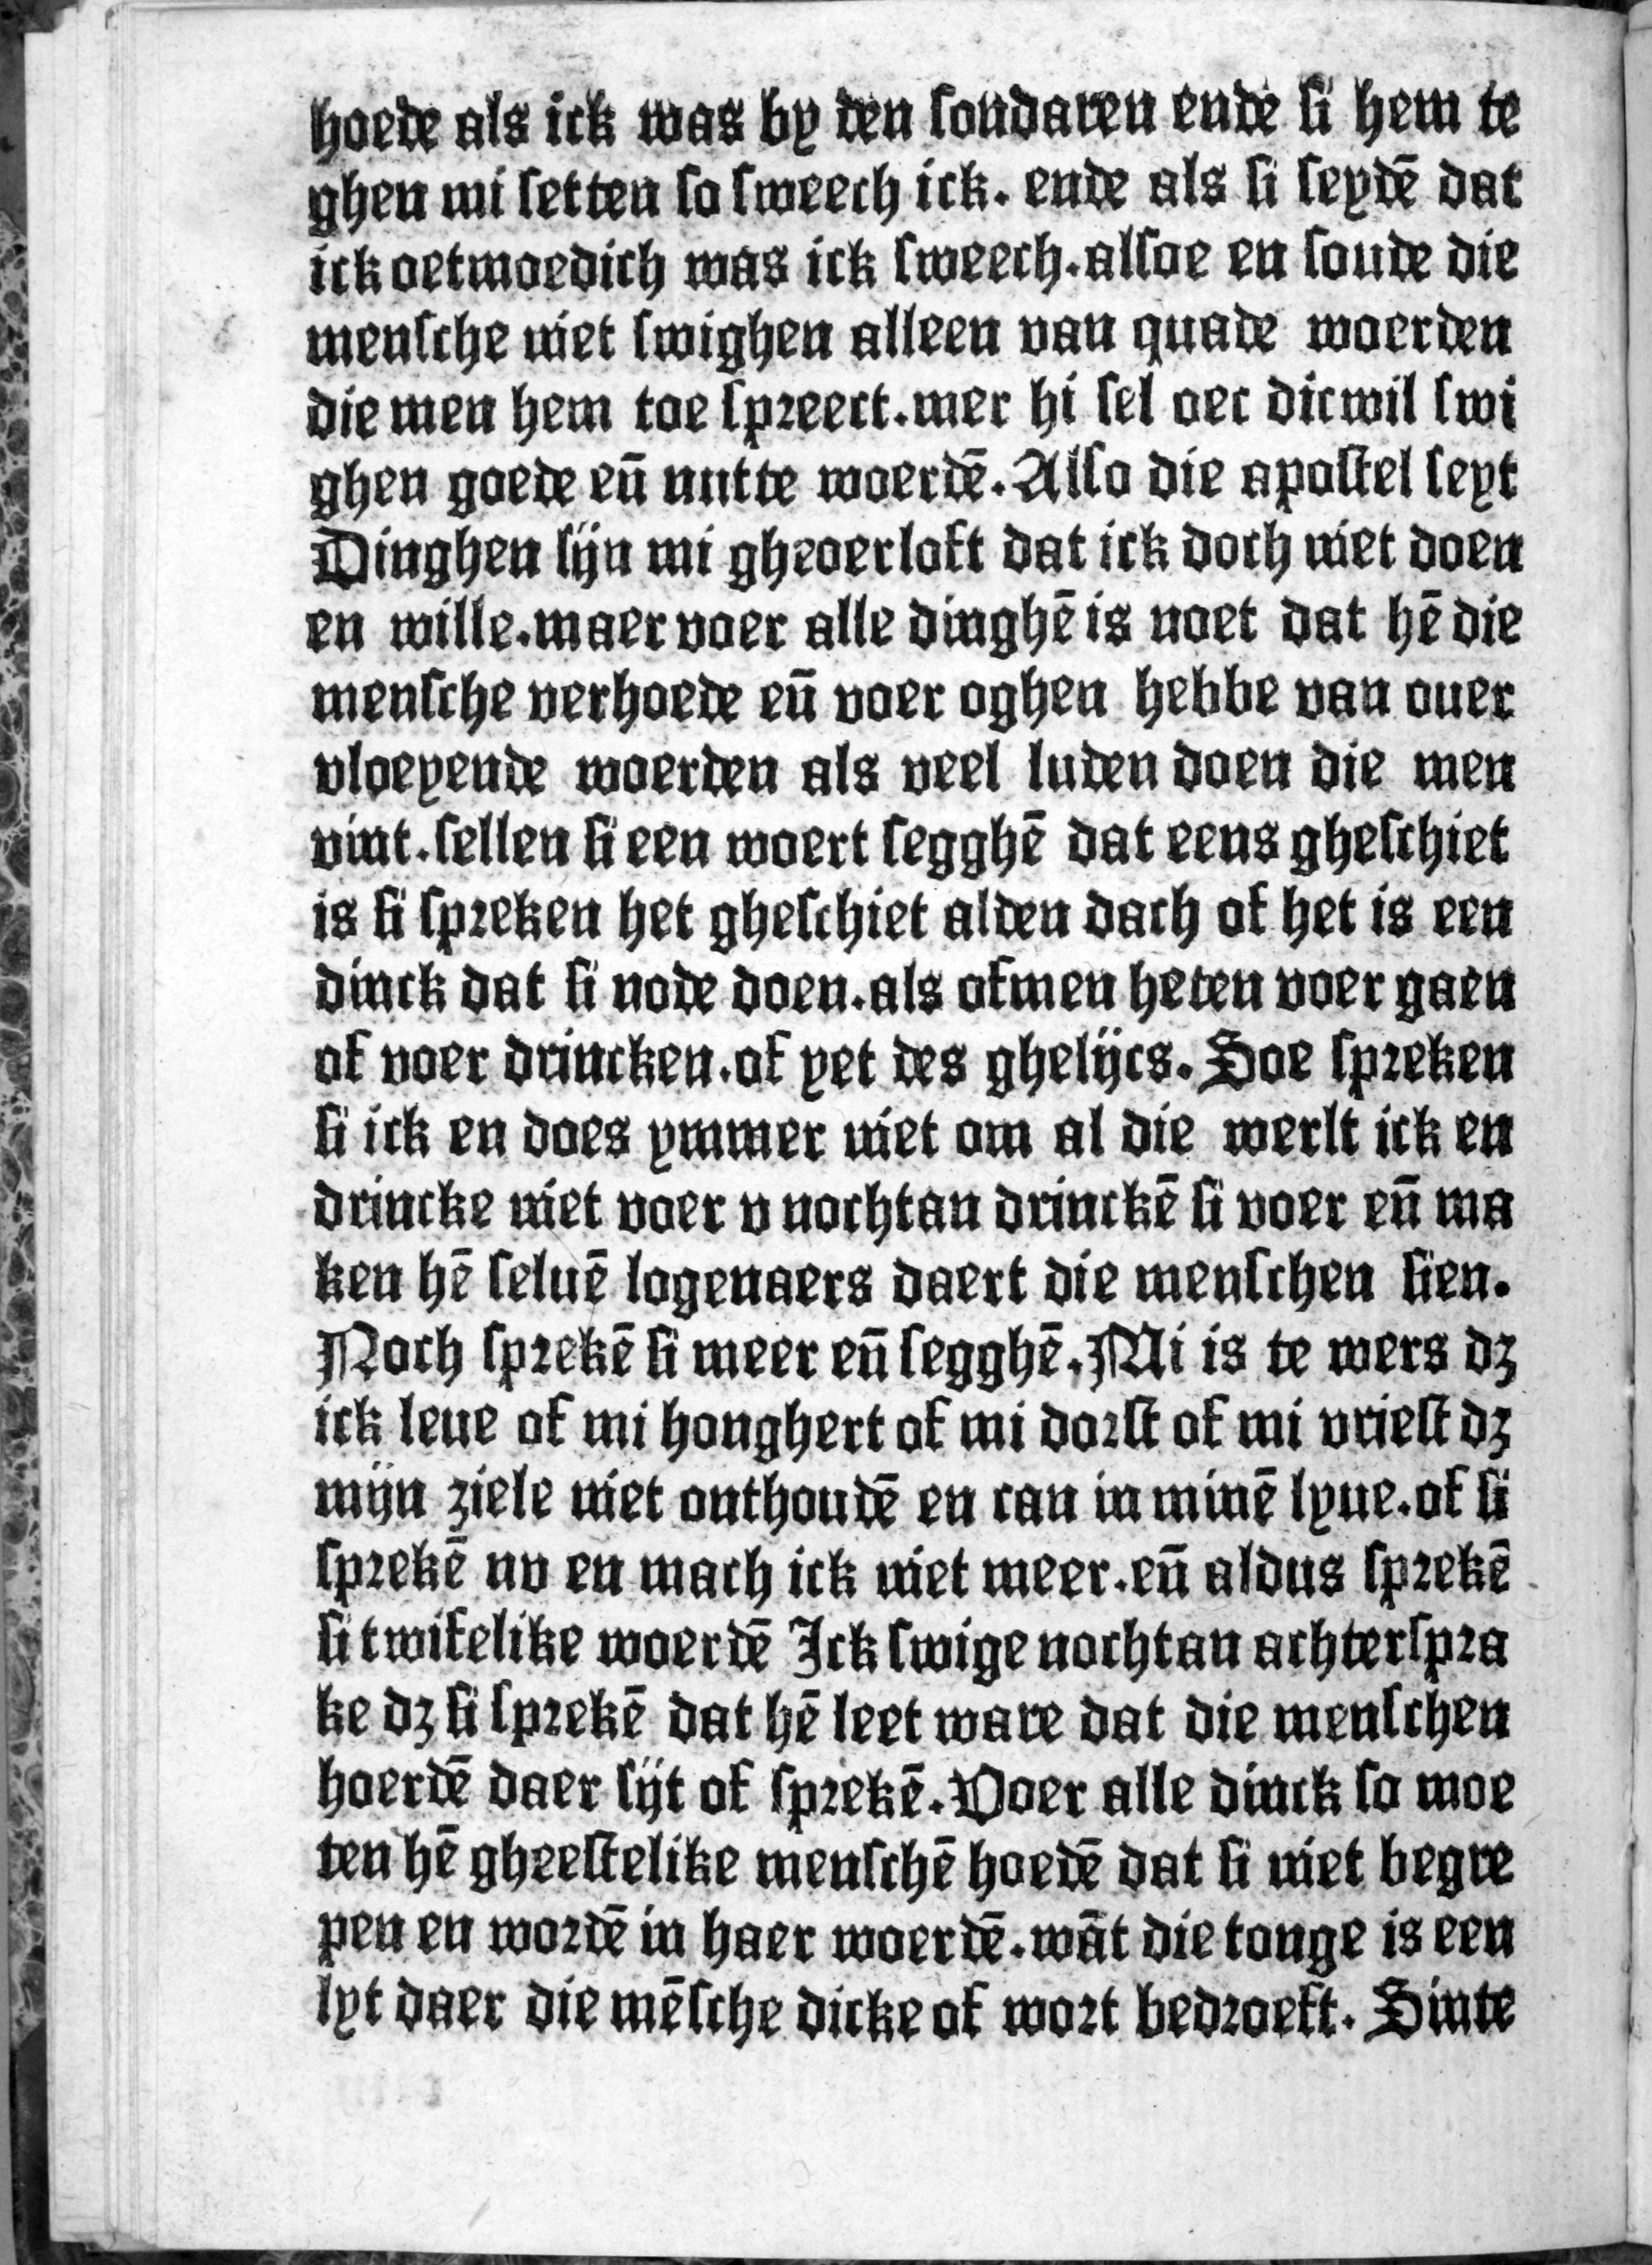 hoede als ick was by den sondaren ende si hem te
ghen mi setten so sweech ick. ende als si seydē dat
ick oetmoedich was ick sweech. alsoe en soude die
mensche niet swighen alleen van quade woerden
die men hem toe spreect. mer hi sel oec dicwil swi
ghen goede eñ nutte woerdē. Also die apostel seyt
Dinghen sijn mi gheoerloft dat ick doch niet doen
en wille. maer voer alle dinghē is noet dat hē die
mensche verhoede eñ voer oghen hebbe van ouer
vloeyende woerden als veel luden doen die men
vint. sellen si een woert segghē dat eens gheschiet
is si spreken het gheschiet alden dach of het is een
dinck dat si node doen. als ofmen heten voer gaen
of voer drincken. of yet des ghelijcs. Soe spreken
si ick en does ymmer niet om al die werlt ick en
drincke niet voer v nochtan drinckē si voer eñ ma
ken hē seluē logenaers daert die menschen sien.
Noch sprekē si meer eñ segghē. Mi is te wers dʒ
ick leue of mi honghert of mi dorst of mi vriest dʒ
mijn ziele niet onthoudē en can in minē lyue. of si
sprekē nv en mach ick niet meer. eñ aldus sprekē
si twifelike woerdē Ick swige nochtan achterspra
ke dʒ si sprekē dat hē leet ware dat die menschen
hoerdē daer sijt of sprekē. Voer alle dinck so moe
ten hē gheestelike menschē hoedē dat si niet begre
pen en wordē in haer woerdē. wāt die tonge is een
lyt daer die mēsche dicke of wort bedroeft. Sinte